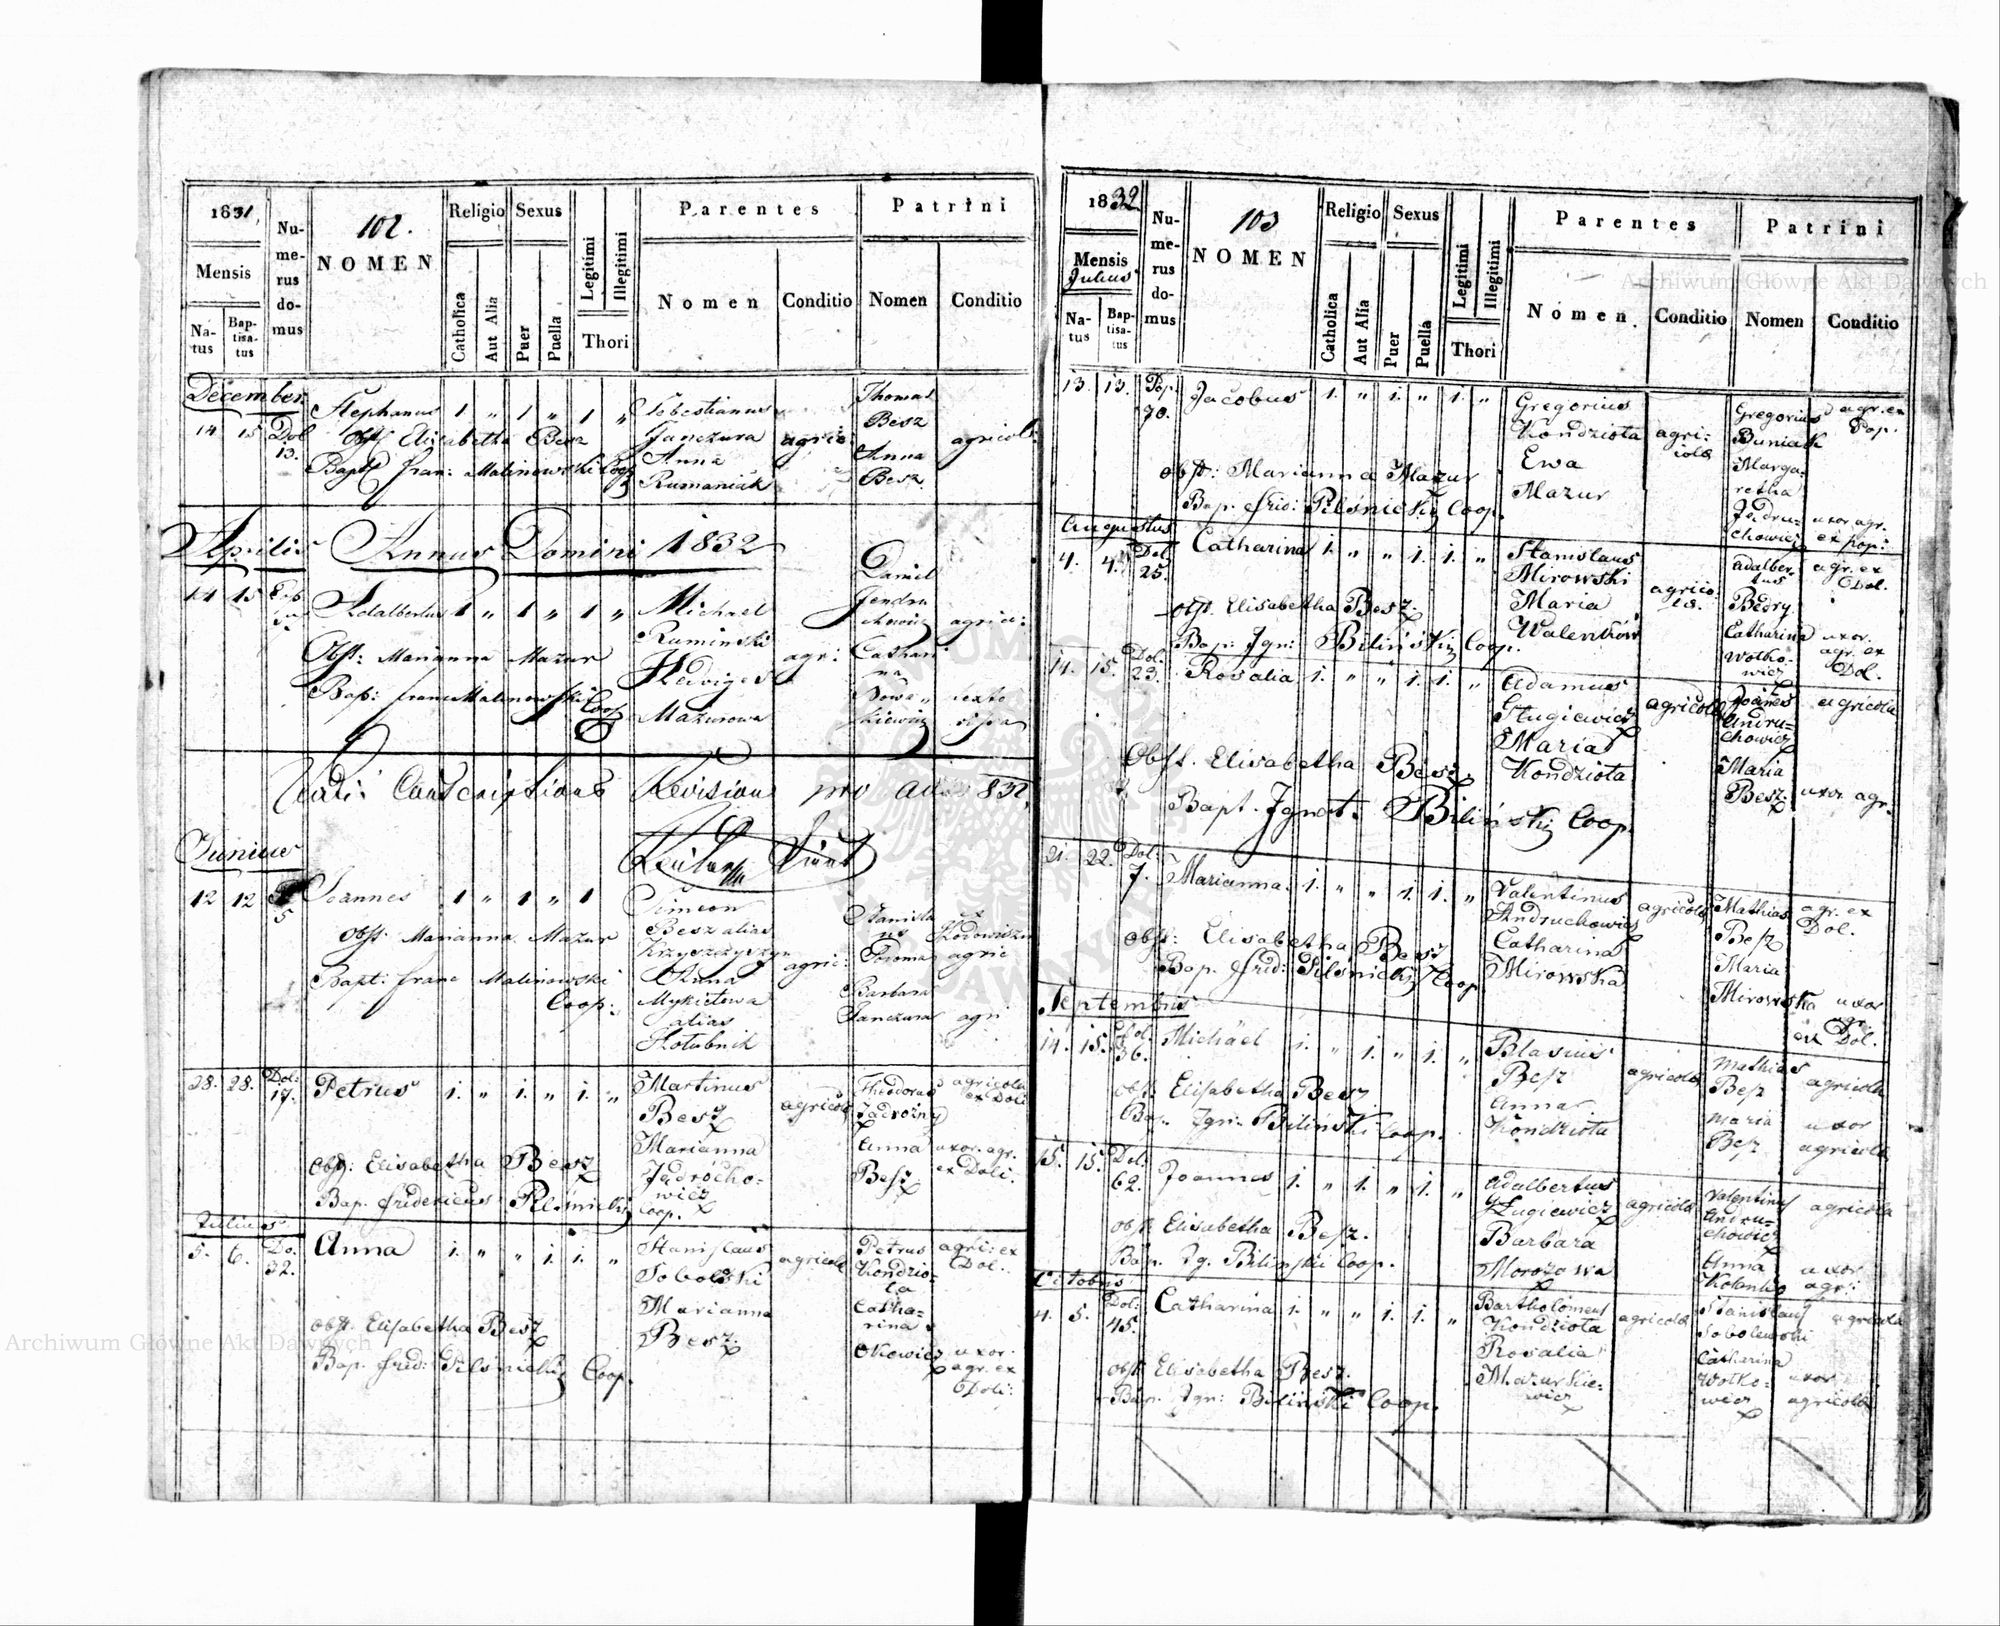 1831.
Mensis
Natus
Baptisatus
Numerus domus
102.
NOMEN
Religio
Catholica
Aut Alia
Sexus
Puer
Puella
Legitimi
Illegitimi
Thori
Parentes
Nomen
Conditio
Patrini
Nomen
Conditio
December
14 15 Dol 13.
Stephanus 1 " 1 " 1 "
Obst Elisabetha Besz
Bapt fran: Malinowski Coop
Sebestianus
Janczura
Anna
Rumaniak
agric.
Thomas
Besz
Anna
Besz.
agricol:
Aprilis Annus Domini 1832
14 15
Adalbertus 1 " 1 " 1 "
Obst: Marianna Mazur
Bap: franc Malinowski Coop
Michael
Ruminski
Hedviges
Mazurowa
agr:
Daniel
Jendru
chowicz
Cathari
na
agric:
Revision pro 831
Junius
12 12 5
Joannes 1 " 1 " 1
Obst. Marianna Mazur
Bapt: franc Malinowski
Coop:
Simeon
Besz alias
Krzyszczyszyn
Anna
Mykietowa
alias
Hotubnik
agric:
Stanisla
us
Barbara
Janczura
agric
agri
28. 28. Dol: 17.
Petrus 1. " 1. " 1. "
Obst: Elisabetha Besz
Bap. fridericus Pilsnicki
Coop.
Martinus
Besz
Marianna
Jadrocho-
wicz
agricola
Theodorus
Zadrozny
Anna
Besz
agricola
ex Doli
uxor. agr.
ex Doli.
Julius
5. 6. Do. 32.
Anna 1. " " 1. 1. "
obst. Elisabetha Besz
Bap. frid: Pilsnicki Coop.
Stanislaus
Sobolski
Marianna
Besz.
agricola
Petrus
Kondzio-
la
Catha-
rina
Okowicz
agri: ex
Dol.
uxor.
agr. ex
Doli:
1832
Mensis
Julius
Natus
Baptisatus
Numerus domus
103
NOMEN
Religio
Catholica
Aut Alia
Sexus
Puer
Puella
Legitimi
Illegitimi
Thori
Parentes
Nomen.
Conditio
Patrini
Nomen
Conditio
13. 13. Pop. 70.
Jacobus 1. " 1. " 1. "
obst: Marianna Mazur
Bap. frid: Pilsnicki Coop.
Gregorius
Kondziota
Ewa
Mazur
agri:
cola
Gregorius
Buniak
Marga-
retha
Jedru-
chowicz
agr. ex
Pop.
uxor agr.
ex pop:
Augustus
4. 4. Dol. 25.
Catharina 1. " " 1. 1. "
obst. Elisabetha Besz.
Bap: Ign: Biliński Coop.
Stanislaus
Mirowski
Maria
Walenków
agrico
la.
Adalber-
tus
Bedry.
Catharina
Wotko-
wicz
agr. ex
Dol.
uxor.
agr. ex
Dol.
14. 15. Dol. 23.
Rosalia 1. " " 1. 1. "
Obst. Elisabetha Besz
Bapt. Ignat. Biliński Coop.
Adamus
Stugiewicz
Maria
Kondziota
agricola
Joanes
Andru-
chowicz
Maria
Besz
agricola
uxor agr.
21. 22. Dol: 7.
Marianna. 1. " " 1. 1. "
Obst: Elisabetha Besz
Bap. frid: Pilsnicki Coop
Valentinus
Andruchowicz
Catharina
Mirowska
agricola
Mathias
Besz
Maria
Mirowska
agr. ex
Dol.
uxor
agr.
ex Dol.
Septembris
14. 15. Dol. 36.
Michäel 1. " 1. " 1. "
obst. Elisabetha Besz
Bap. Ign: Biliński Coop.
Blasius
Besz
Anna
Kondziota
agricola
Mathias
Besz
Maria
Besz
agricola
uxor
agricola
15. 15. Dol. 62.
Joannes 1. " 1. " 1. "
obst. Elisabetha Besz.
Bap. Ig. Biliński Coop.
Adalbertus
Ługiewicz
Barbara
Morozowa
agricola
Valentinus
Andru-
chowicz
Anna
Kolanko
agricola
uxor
agr:
Octobris
4. 5. Dol: 45.
Catharina 1. " " 1. 1. "
obst. Elisabetha Besz.
Bap. Ign: Biliński Coop.
Bartholomeus
Kondziota
Rosalia
Mazurkie-
wicz
agricola
Stanislaus
Sobolewski
Catharina
Wotko-
wicz
agricola
uxor
agricola
Archiwum Główne Akt Dawnych
Archiwum Główne Akt Dawnych